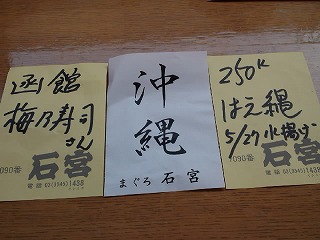 函館
梅乃寿司
さん
090番
石宮
電話 03(3545)1438
沖
縄
まぐろ 石宮
250K
はえ縄
5/27水揚げ
090番
石宮
電話 03(3545)1438